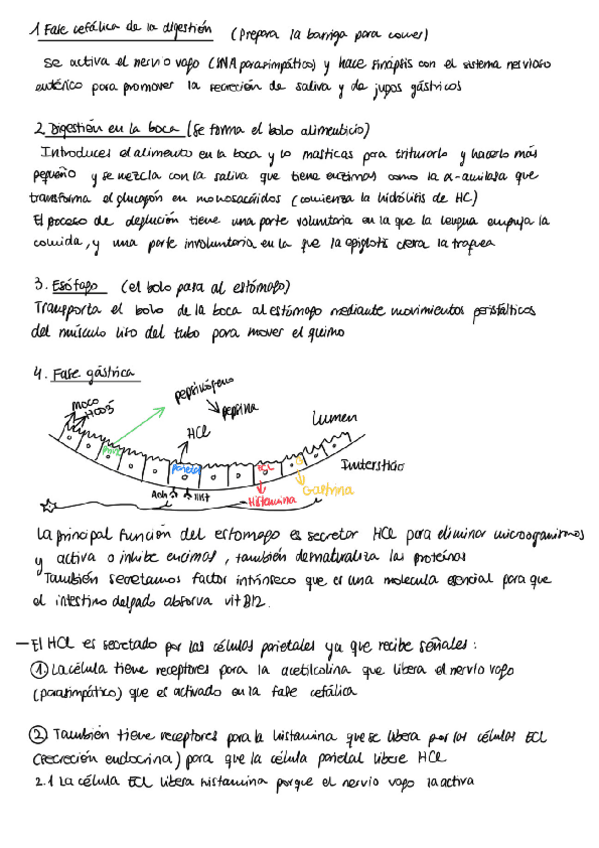 1 Fase cefálica de la digestión (Prepara la barriga para comer)
se activa el nervio vago (SNA parasimpático) y hace sinápsis con el sistema nervioso
entérico para promover la secreción de saliva y de jugos gástricos
2 Digestión en la boca (Se forma el bolo alimenticio)
Introduces el alimento en la boca y lo masticas para triturarlo y hacerlo más
pequeño y se mezcla con la saliva que tiene enzimas como la α-amilasa que
transforma el glucogón en monosacáridos (comienza la hidrólisis de HC)
El proceso de deglución tiene una parte voluntaria en la que la lengua empuja la
comida, y una parte involuntaria en la que la epiglotis cierra la traquea
3. Esófago (el bolo pasa al estómago)
Transporta el bolo de la boca al estómago mediante movimientos peristálticos
del músculo liso del tubo para mover el quimo
4. Fase gástrica
moco
HCO3
pepsinógeno
pepsina
HCl
Lumen
Intersticio
parietal
ECL
G
Ach
Hist
Histamina
Gastrina
La principal función del estomago es secretar HCl para eliminar microorganismos
y activa o inhibe encimas, también desnaturaliza las proteínas
También secretamos factor intrínseco que es una molecula esencial para que
el intestino delgado absorva vit B12.
— El HCl es secretado por las células parietales ya que recibe señales:
① La célula tiene receptores para la acetilcolina que libera el nervio vago
(parasimpático) que es activado en la fase cefálica
② También tiene receptores para la histamina que se libera por las células ECL
(secreción endocrina) para que la célula parietal libere HCl
2.1 La célula ECL libera histamina porque el nervio vago la activa